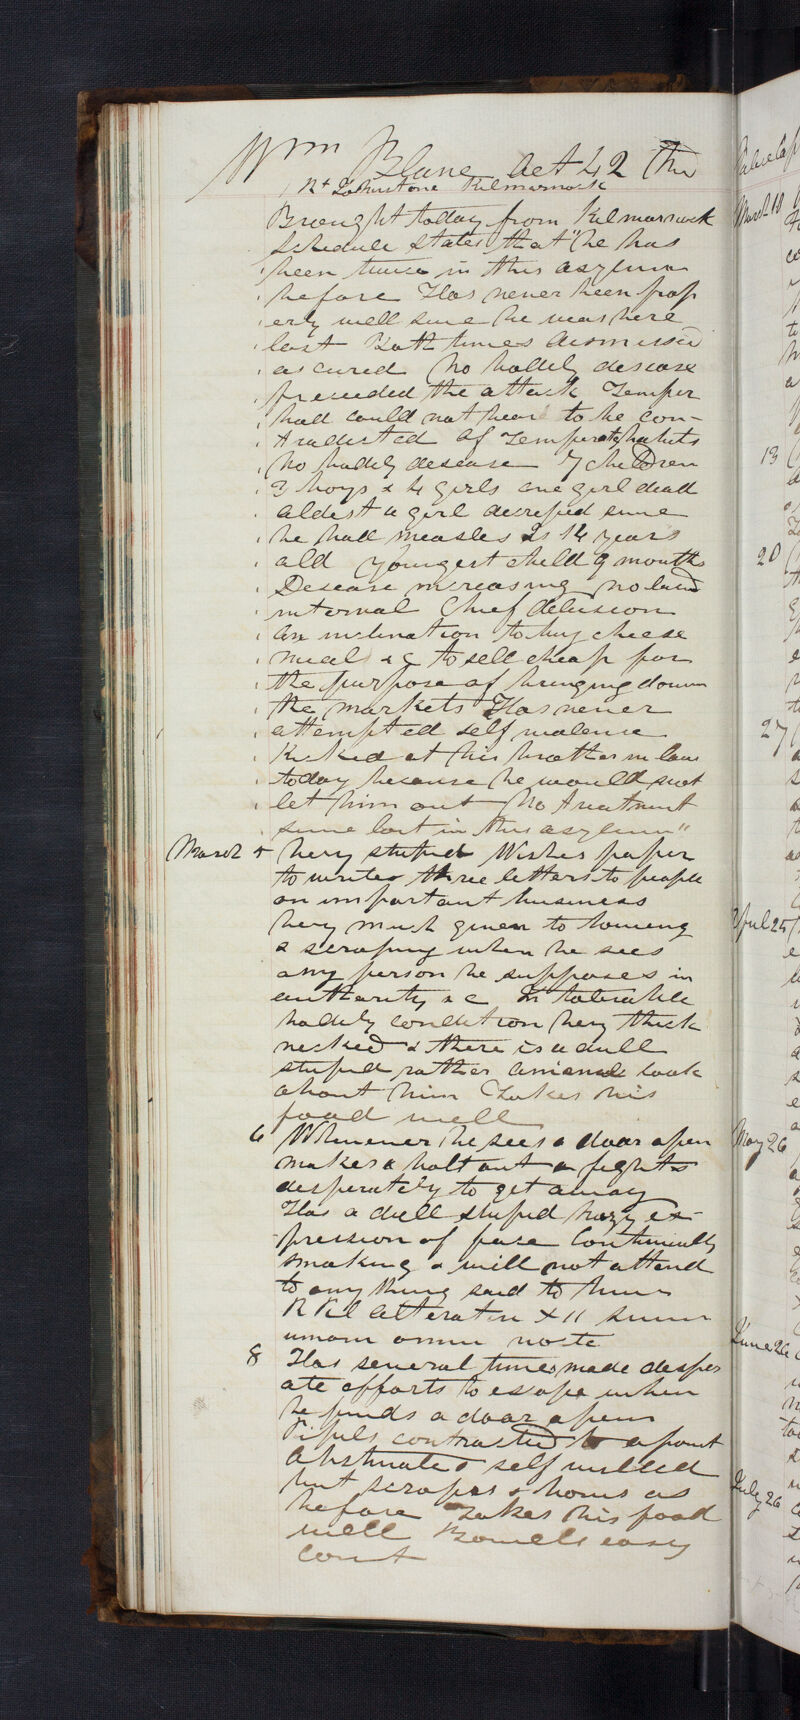 Wm Blane Aet 42
Rt Johnstone Kilmarnock
Brought today from Kilmarnock
Schedule states that "he has
been twice in this asylum
before Has never been prop
erly well since he was here
last Both times dismissed
as cured No bodily disease
preceeded the attack Temper
bad could not bear to be con-
tradicted Of Temperate habits
No bodily disease 7 children
3 boys & 4 girls one girl dead
oldest a girl since
he had measles is 14 years
old youngest child 9 months
Disease increasing no lucid
interval Chief delusion
an inclination to buy cheese
meal &c to sell cheap for
the purpose of bringing down
the markets Has never
attempted self violence
Kicked at his brother in law
today because he would not
let him out No treatment
since last in this asylum"
March 5 Very stupid Wishes paper
to write three letters to people
on important business
Very much given to bowing
& scraping when he sees
any person he supposes in
authority &c In tolerable
bodily condition Very thick
necked & there is a dull
stupid rather look
about him Takes his
food well
6 Whenever he sees a door open
makes a bolt out & fights
desperately to get away
Has a dull stupid hazy ex-
pression of face Continually
smoking & will not attend
to any thing said to him
R Pil
omni nocte
8 Has several times made desper
ate efforts to escape when
he finds a door open
Pupils contracted to a point
Obstinate & self willed
but scrapes & bows as
before Takes his food
well Bowels easy
Cont
March 10
13
20
27
April 25
May 26
June 26
July 26